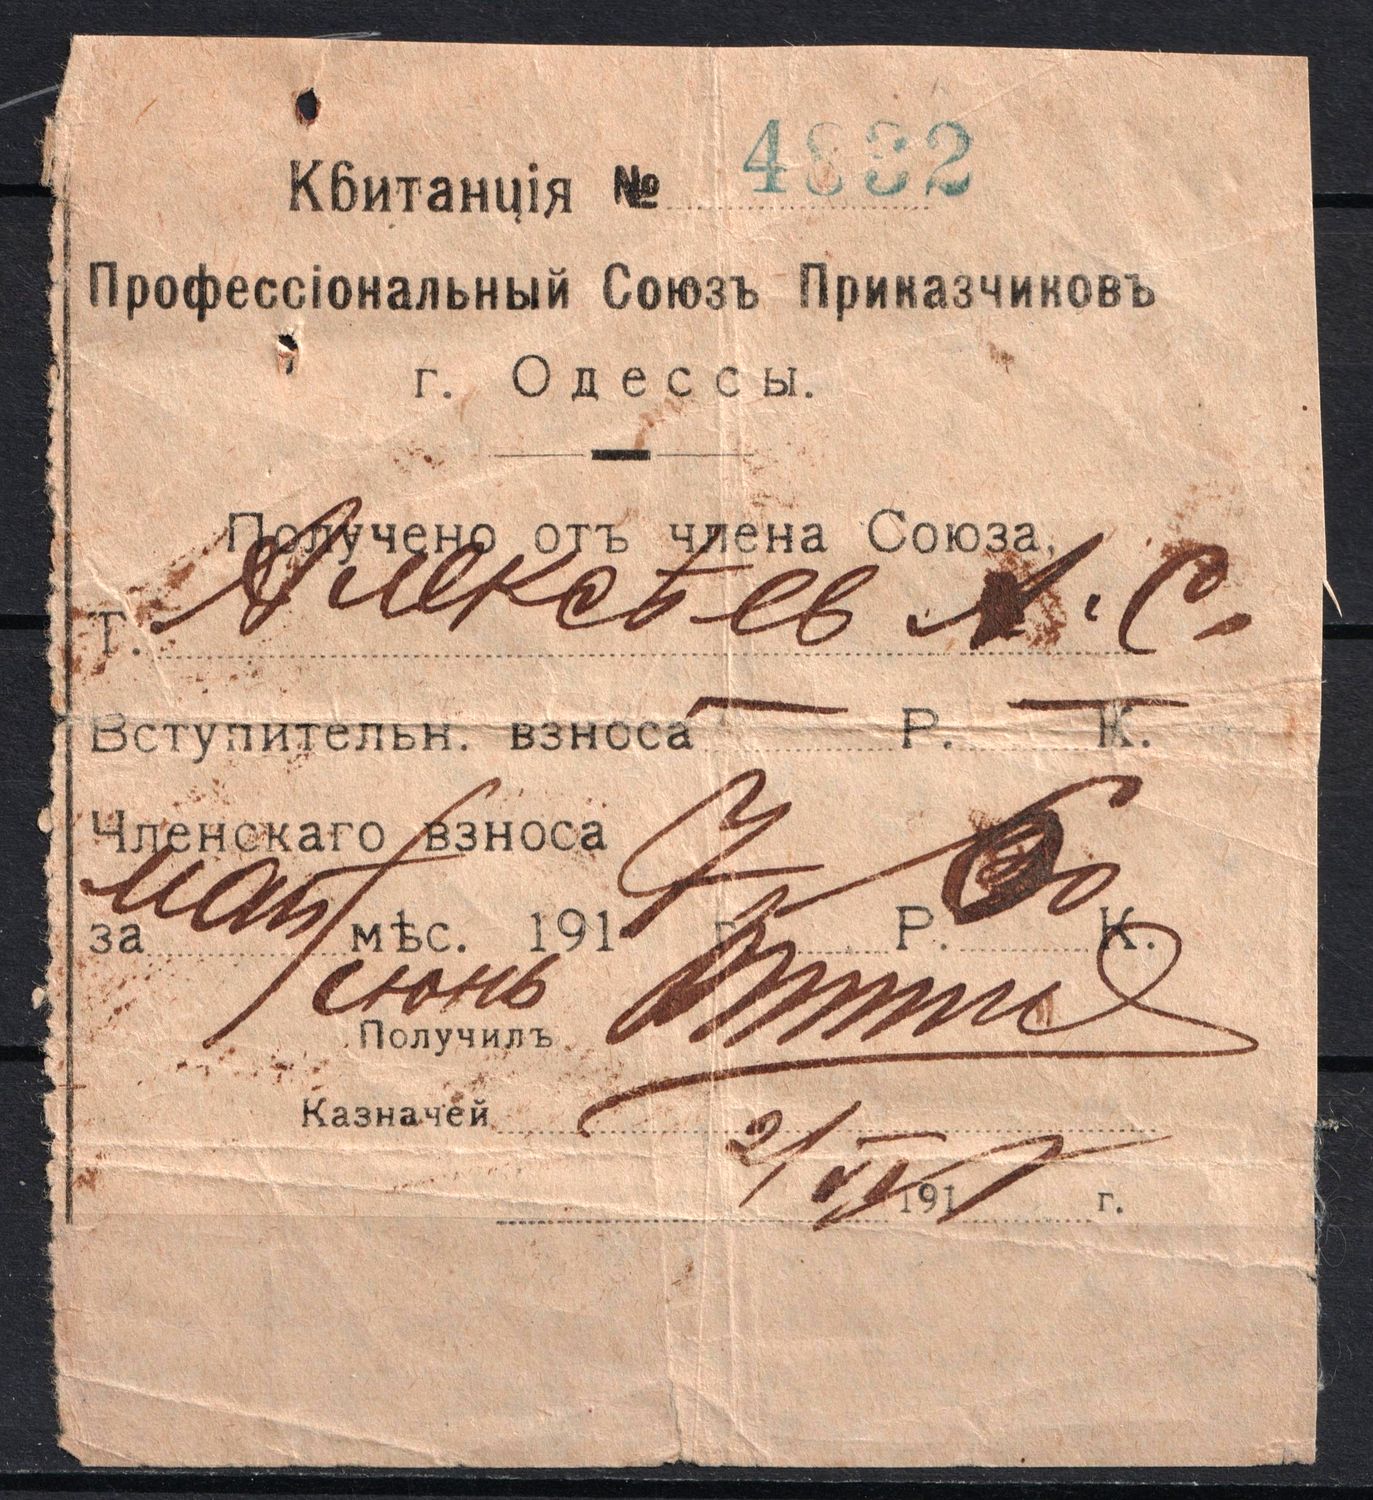 Квитанцiя № 4832
Профессiональный Союзъ Приказчиковъ
г. Одессы.
Получено отъ члена Союза,
Т. Алексѣев А. С.
Вступительн. взноса — Р. — К.
Членскаго взноса
за май мѣс. 1917 г. Р. К.
июнь
Получилъ
Казначей
2/VI 1917 г.